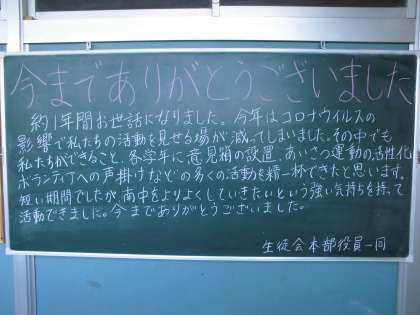 今までありがとうございました
約1年間お世話になりました。今年はコロナウイルスの
影響で私たちの活動を見せる場が減ってしまいました。その中でも
私たちができること、各学年に意見箱の設置、あいさつ運動の活性化
ボランティアへの声掛けなどの多くの活動を精一杯できたと思います。
短い期間でしたが、南中をよりよくしていきたいという強い気持ちを持って
活動できました。今までありがとうございました。
生徒会本部役員一同